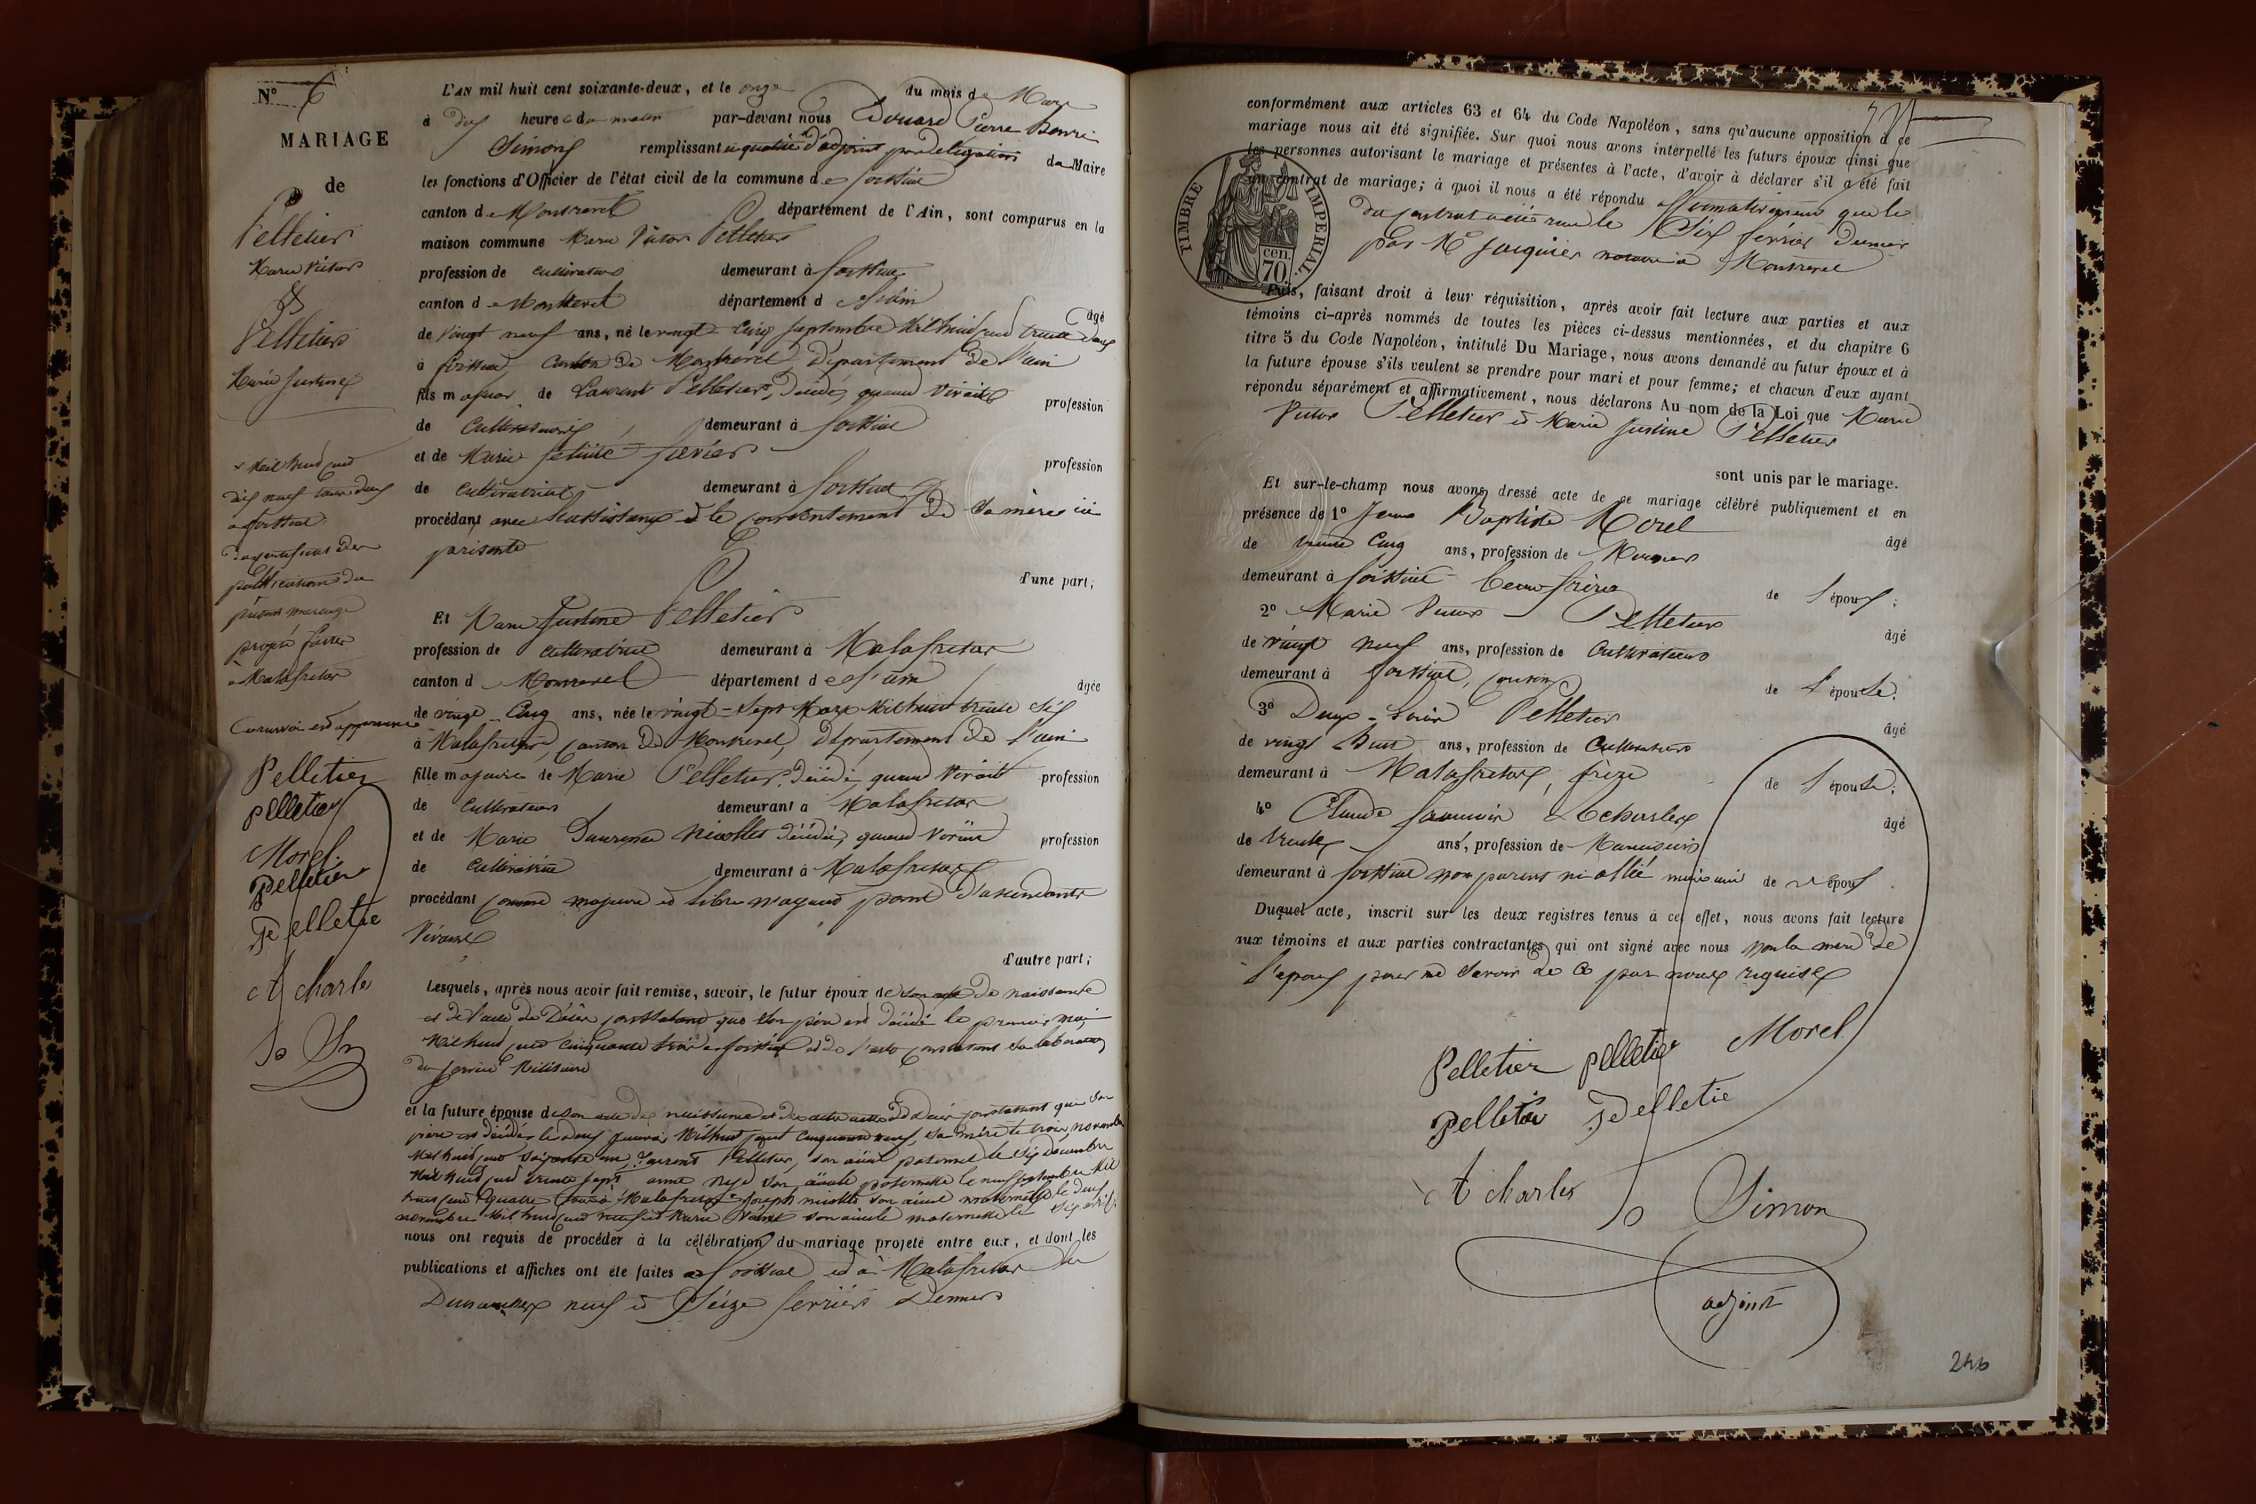 N° 6
MARIAGE
de
Pelletier
Marie Victor
&
Pelletier
Marie Justine
mil huit cent
à foissiat
publications du
présent mariage
à Malafretaz
Pelletier
pelletier
Morel
Pelletier
Pelletie
charles
L'AN mil huit cent soixante-deux, et le onze du mois de Mars
à dix heures du matin par-devant nous Edouard Pierre Henri
Simon remplissant en qualité d'adjoint par délégation du Maire
les fonctions d'Officier de l'état civil de la commune de foissiat
canton de Montrevel département de l'Ain, sont comparus en la
maison commune Marie Victor Pelletier
profession de cultivateur demeurant à foissiat
canton de Montrevel département de l'ain
âgé
de vingt neuf ans, né le vingt-cinq septembre mil huit cent trente deux
à foissiat, canton de Montrevel, département de l'ain
fils majeur de Laurent Pelletier, décédé, quand vivait profession
de cultivateur, demeurant à foissiat
et de Marie félicité profession
de cultivatrice demeurant à foissiat
procédant avec l'assistance et le consentement de sa mère ici
présente
d'une part;
Et Marie Justine Pelletier
profession de cultivatrice demeurant à Malafretaz
canton de Montrevel département de l'ain
âgée
de vingt-cinq ans, née le vingt-sept Mars mil huit trente six
à Malafretaz, canton de Montrevel, département de l'ain
fille majeure de Marie Pelletier, décédé, quand vivait profession
de cultivateur demeurant à Malafretaz
et de Marie Laurence nicollet décédée, quand vivait profession
de cultivatrice demeurant à Malafretaz
procédant comme majeure et libre n'ayant point d'ascendants
vivants
d'autre part;
Lesquels, après nous avoir fait remise, savoir, le futur époux de son acte de naissance
et de l'acte de décès constatant que son père est décédé le premier mai
mil huit cent cinquante trois à foissiat et de l'acte constatant sa libération
du service militaire
et la future épouse de son acte de naissance et des actes de décès constatant que son
père est décédé le deux janvier mil huit cent cinquante neuf, sa mère le trois novembre
mil huit cent soixante un, Laurent Pelletier, son aïeul paternel le six décembre
mil huit cent trente sept son aïeule paternelle le neuf septembre mil
huit cent quatre à Malafretaz Joseph nicollet son aïeul maternel le deux
novembre mil huit cent neuf et Marie son aïeule maternelle le six
nous ont requis de procéder à la célébration du mariage projeté entre eux, et dont les
publications et affiches ont été faites à foissiat et à Malafretaz les
Dimanches neuf et seize février dernier
conformément aux articles 63 et 64 du Code Napoléon, sans qu'aucune opposition à ce
mariage nous ait été signifiée. Sur quoi nous avons interpellé les futurs époux ainsi que
les personnes autorisant le mariage et présentes à l'acte, d'avoir à déclarer s'il a été fait
un contrat de mariage; à quoi il nous a été répondu affirmativement que le
dit contrat a été reçu le six février dernier
par Me Jacquier notaire à Montrevel
TIMBRE IMPERIAL.
cen.
70
Puis, faisant droit à leur réquisition, après avoir fait lecture aux parties et aux
témoins ci-après nommés de toutes les pièces ci-dessus mentionnées, et du chapitre 6
titre 5 du Code Napoléon, intitulé Du Mariage, nous avons demandé au futur époux et à
la future épouse s'ils veulent se prendre pour mari et pour femme; et chacun d'eux ayant
répondu séparément et affirmativement, nous déclarons Au nom de la Loi que Marie
Victor Pelletier et Marie Justine Pelletier
sont unis par le mariage.
Et sur-le-champ nous avons dressé acte de ce mariage célébré publiquement et en
présence de 1° Jean Baptiste Morel
âgé
de trente cinq ans, profession de
demeurant à foissiat beau frère de l'époux;
2° Marie Victor Pelletier
âgé
de vingt neuf ans, profession de cultivateur
demeurant à foissiat, cousin de l'épouse;
3° Pelletier
âgé
de vingt huit ans, profession de cultivateur
demeurant à Malafretaz, frère de l'épouse;
4° Claude
âgé
de trente ans, profession de Menuisier
demeurant à foissiat non parent ni allié mais ami de l'époux.
Duquel acte, inscrit sur les deux registres tenus à cet effet, nous avons fait lecture
aux témoins et aux parties contractantes qui ont signé avec nous non la mère de
l'époux pour ne savoir de ce par nous requise
Pelletier pelletier Morel
Pelletier Pelletie
charles Simon
adjoint
246